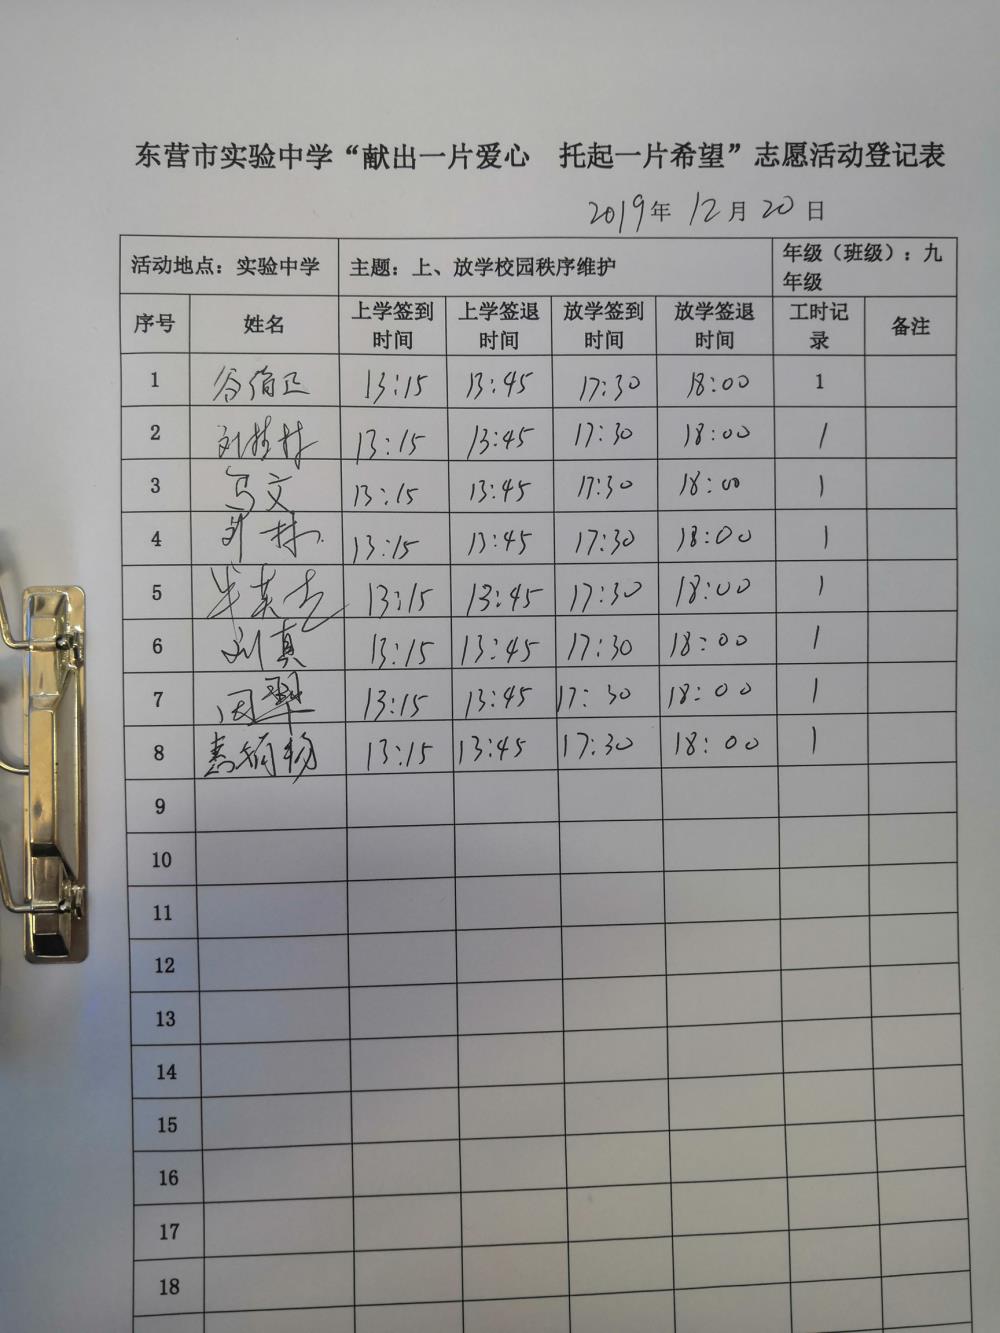 东营市实验中学“献出一片爱心 托起一片希望”志愿活动登记表
2019年 12月 20日
活动地点：实验中学 主题：上、放学校园秩序维护 年级（班级）：九年级
序号 姓名 上学签到时间 上学签退时间 放学签到时间 放学签退时间 工时记录 备注
1 13:15 13:45 17:30 18:00 1
2 刘桂林 13:15 13:45 17:30 18:00 1
3 马文 13:15 13:45 17:30 18:00 1
4 13:15 13:45 17:30 18:00 1
5 13:15 13:45 17:30 18:00 1
6 刘真 13:15 13:45 17:30 18:00 1
7 13:15 13:45 17:30 18:00 1
8 13:15 13:45 17:30 18:00 1
9
10
11
12
13
14
15
16
17
18